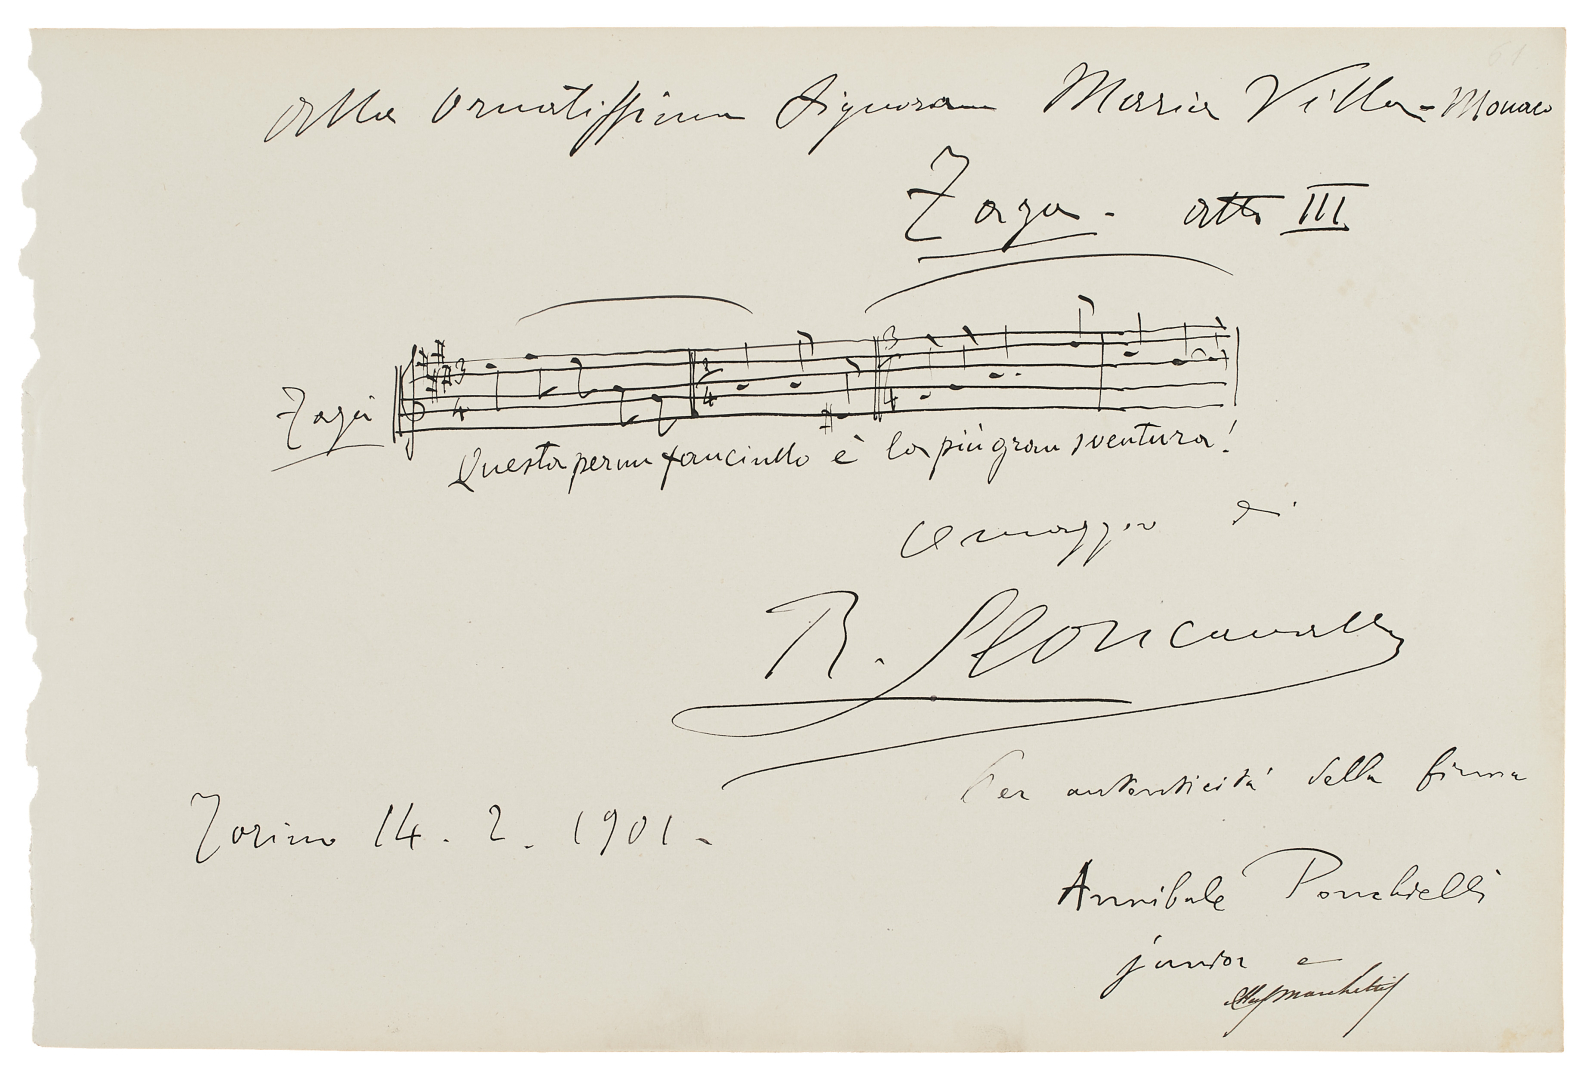 alla ornatissima Signora Maria Villa-Monaco
Zaza - atto III
Zazà
3 4 2 4 3 4
Questa per un fanciullo è la più gran sventura!
Omaggio di
R. Leoncavallo
Torino 14. 2. 1901.
Per autenticità della firma
Annibale Ponchielli
junior e
Marchetti
61